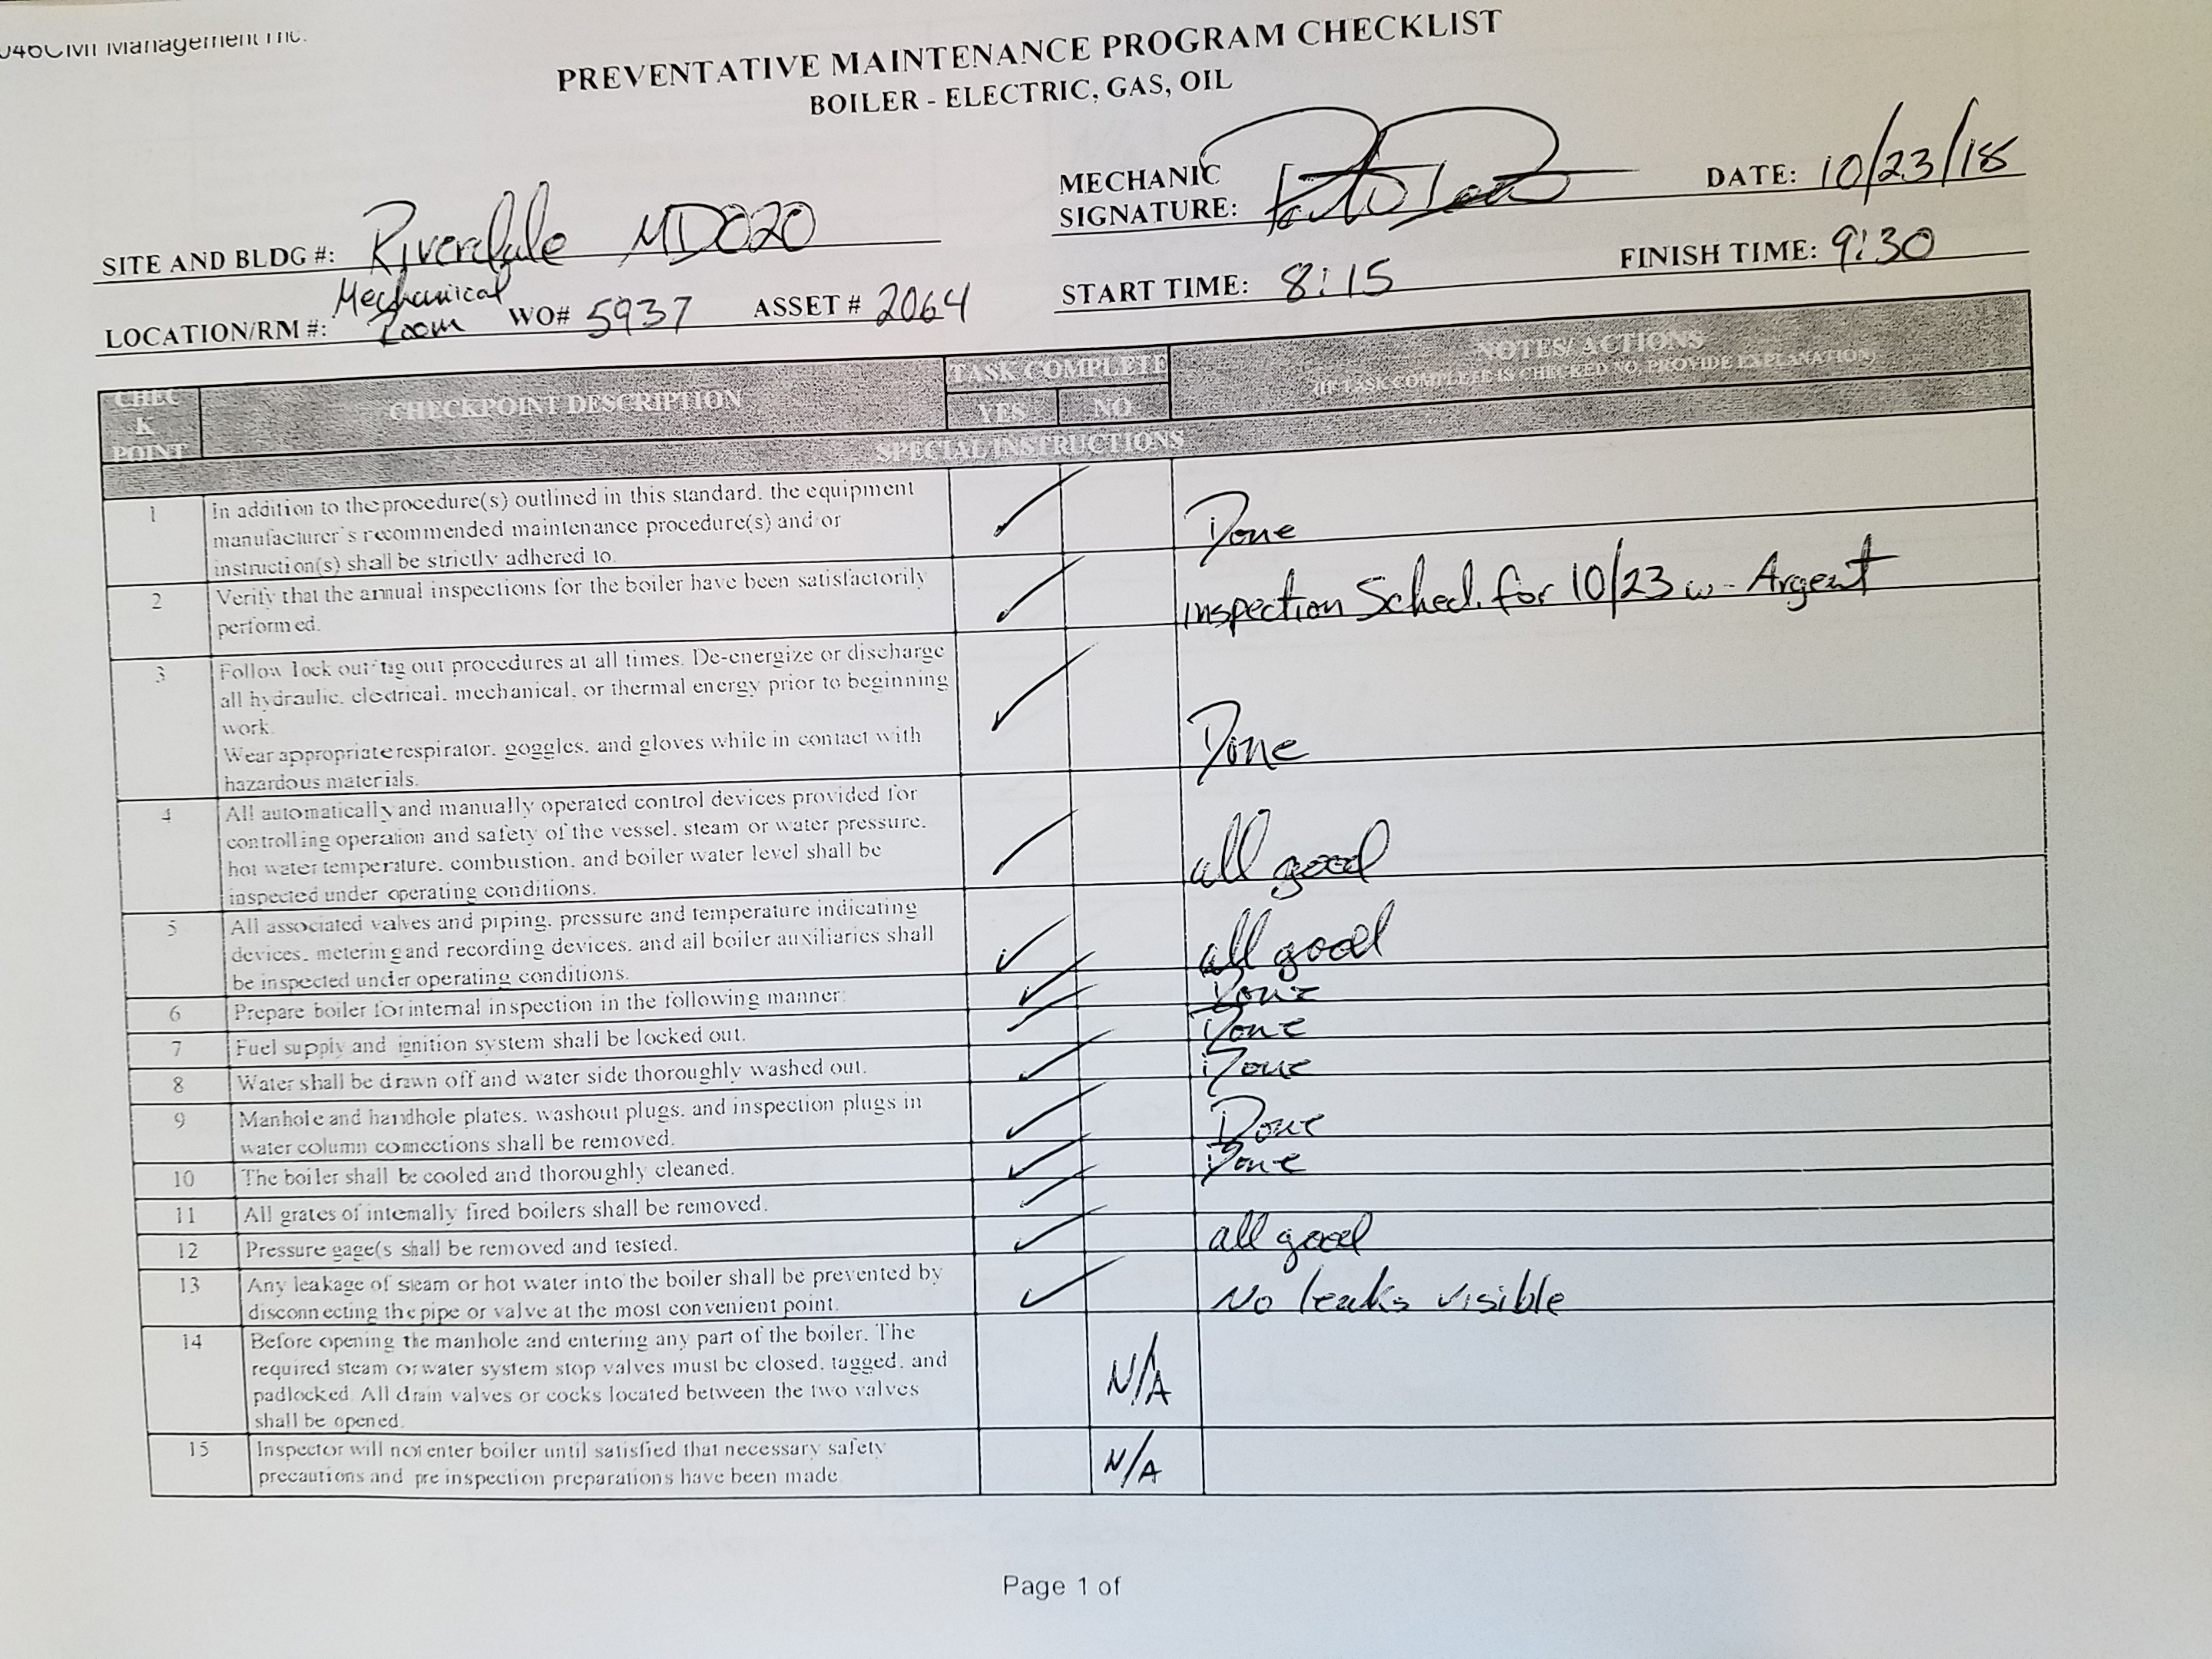 Management Inc.
PREVENTATIVE MAINTENANCE PROGRAM CHECKLIST
BOILER - ELECTRIC, GAS, OIL
MECHANIC
SIGNATURE:
DATE: 10/23/18
SITE AND BLDG #: Riverdale MD020
START TIME: 8:15
FINISH TIME: 9:30
LOCATION/RM #: Mechanical Room WO# 5937 ASSET # 2064
CHEC
K
POINT
CHECKPOINT DESCRIPTION
TASK COMPLETE
YES NO
NOTES/ ACTIONS
(IF TASK COMPLETE IS CHECKED NO, PROVIDE EXPLANATION)
SPECIAL INSTRUCTIONS
1 In addition to the procedure(s) outlined in this standard, the equipment
manufacturer's recommended maintenance procedure(s) and or
instruction(s) shall be strictly adhered to.
✓ Done
2 Verify that the annual inspections for the boiler have been satisfactorily
performed.
✓ inspection Sched. for 10/23 w- Argent
3 Follow lock out/tag out procedures at all times. De-energize or discharge
all hydraulic, electrical, mechanical, or thermal energy prior to beginning
work.
Wear appropriate respirator, goggles, and gloves while in contact with
hazardous materials.
✓ Done
4 All automatically and manually operated control devices provided for
controlling operation and safety of the vessel, steam or water pressure,
hot water temperature, combustion, and boiler water level shall be
inspected under operating conditions.
✓ all good
5 All associated valves and piping, pressure and temperature indicating
devices, metering and recording devices, and all boiler auxiliaries shall
be inspected under operating conditions.
✓ all good
6 Prepare boiler for internal inspection in the following manner:
✓ Done
7 Fuel supply and ignition system shall be locked out.
✓ Done
8 Water shall be drawn off and water side thoroughly washed out.
✓ Done
9 Manhole and handhole plates, washout plugs, and inspection plugs in
water column connections shall be removed.
✓ Done
10 The boiler shall be cooled and thoroughly cleaned.
✓ Done
11 All grates of internally fired boilers shall be removed.
✓
12 Pressure gage(s shall be removed and tested.
✓ all good
13 Any leakage of steam or hot water into the boiler shall be prevented by
disconnecting the pipe or valve at the most convenient point.
✓ No leaks visible
14 Before opening the manhole and entering any part of the boiler. The
required steam or water system stop valves must be closed, tagged, and
padlocked. All drain valves or cocks located between the two valves
shall be opened.
N/A
15 Inspector will not enter boiler until satisfied that necessary safety
precautions and pre inspection preparations have been made
N/A
Page 1 of